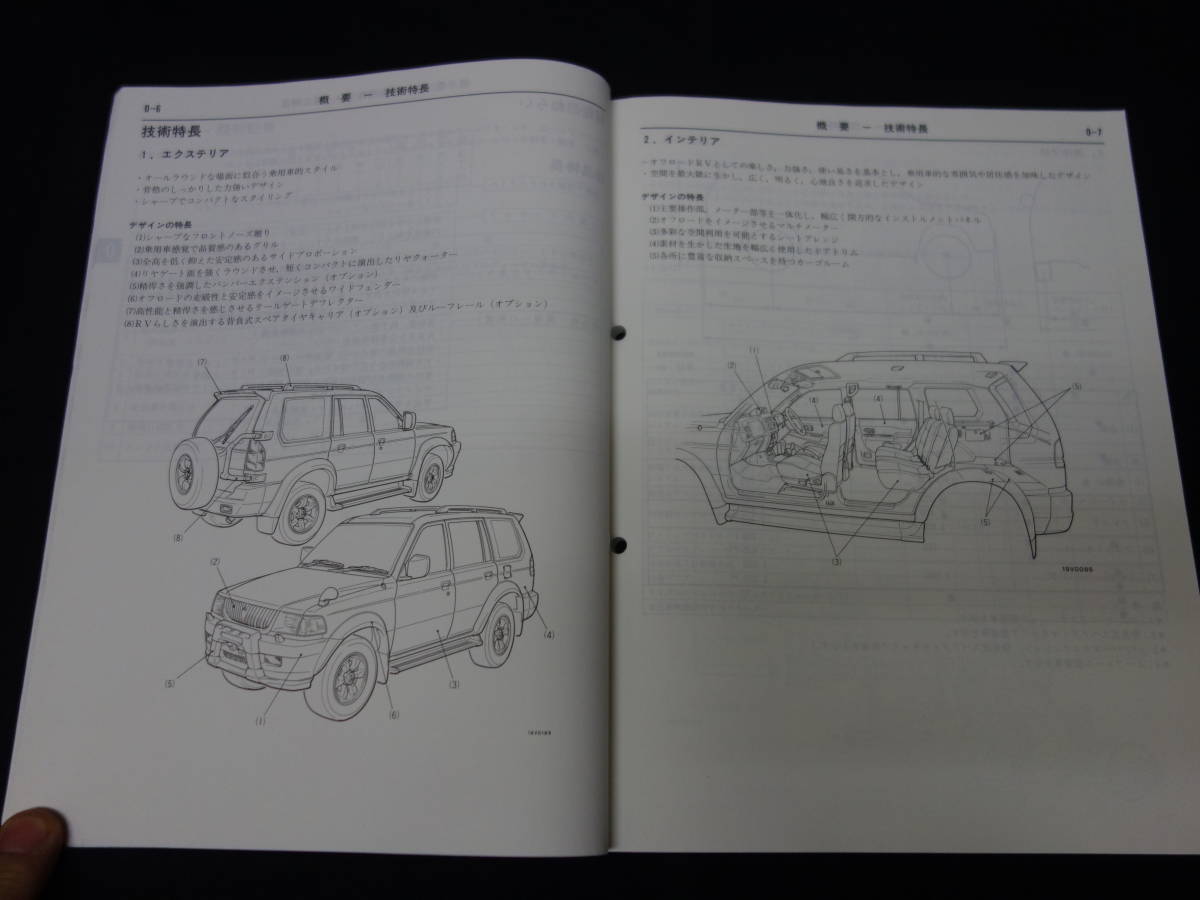 0-6
概 要 − 技術特長
技術特長
1．エクステリア
・オールラウンドな場面に似合う乗用車的スタイル
・骨格のしっかりした力強いデザイン
・シャープでコンパクトなスタイリング
デザインの特長
(1)シャープなフロントノーズ廻り
(2)乗用車感覚で品質感のあるグリル
(3)全高を低く抑えた安定感のあるサイドプロポーション
(4)リヤゲート面を強くラウンドさせ、短くコンパクトに演出したリヤクォーター
(5)精悍さを強調したバンパーエクステンション（オプション）
(6)オフロードの走破性と安定感をイメージさせるワイドフェンダー
(7)高性能と精悍さを感じさせるテールゲートデフレクター
(8)RVらしさを演出する背負式スペアタイヤキャリア（オプション）及びルーフレール（オプション）
(7)
(8)
(8)
(2)
(4)
(5)
(3)
(6)
(1)
概 要 − 技術特長
0-7
2．インテリア
・オフロードRVとしての楽しさ、力強さ、使い易さを基本とし、乗用車的な雰囲気や居住感を加味したデザイン
・空間を最大限に生かし、広く、明るく、心地良さを追求したデザイン
デザインの特長
(1)主要操作部、メーター部等を一体化し、幅広く開方的なインストルメントパネル
(2)オフロードをイメージさせるマルチメーター
(3)多彩な空間利用を可能とするシートアレンジ
(4)素材を生かした生地を幅広く使用したドアトリム
(5)各所に豊富な収納スペースを持つカーゴルーム
(1)
(2)
(4)
(4)
(5)
(5)
(3)
19V0086